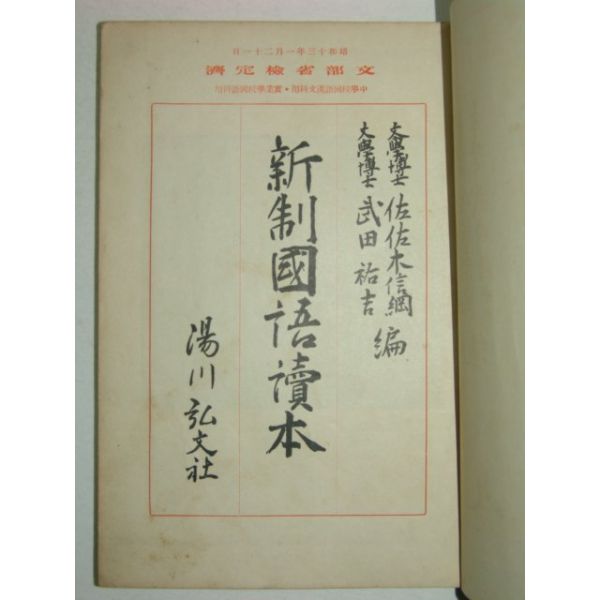 昭和十三年一月二十一日
文部省檢定濟
中學校國語漢文科用・實業學校國語科用
文學博士 佐佐木信綱
文學博士 武田祐吉 編
新制國語讀本
湯川弘文社